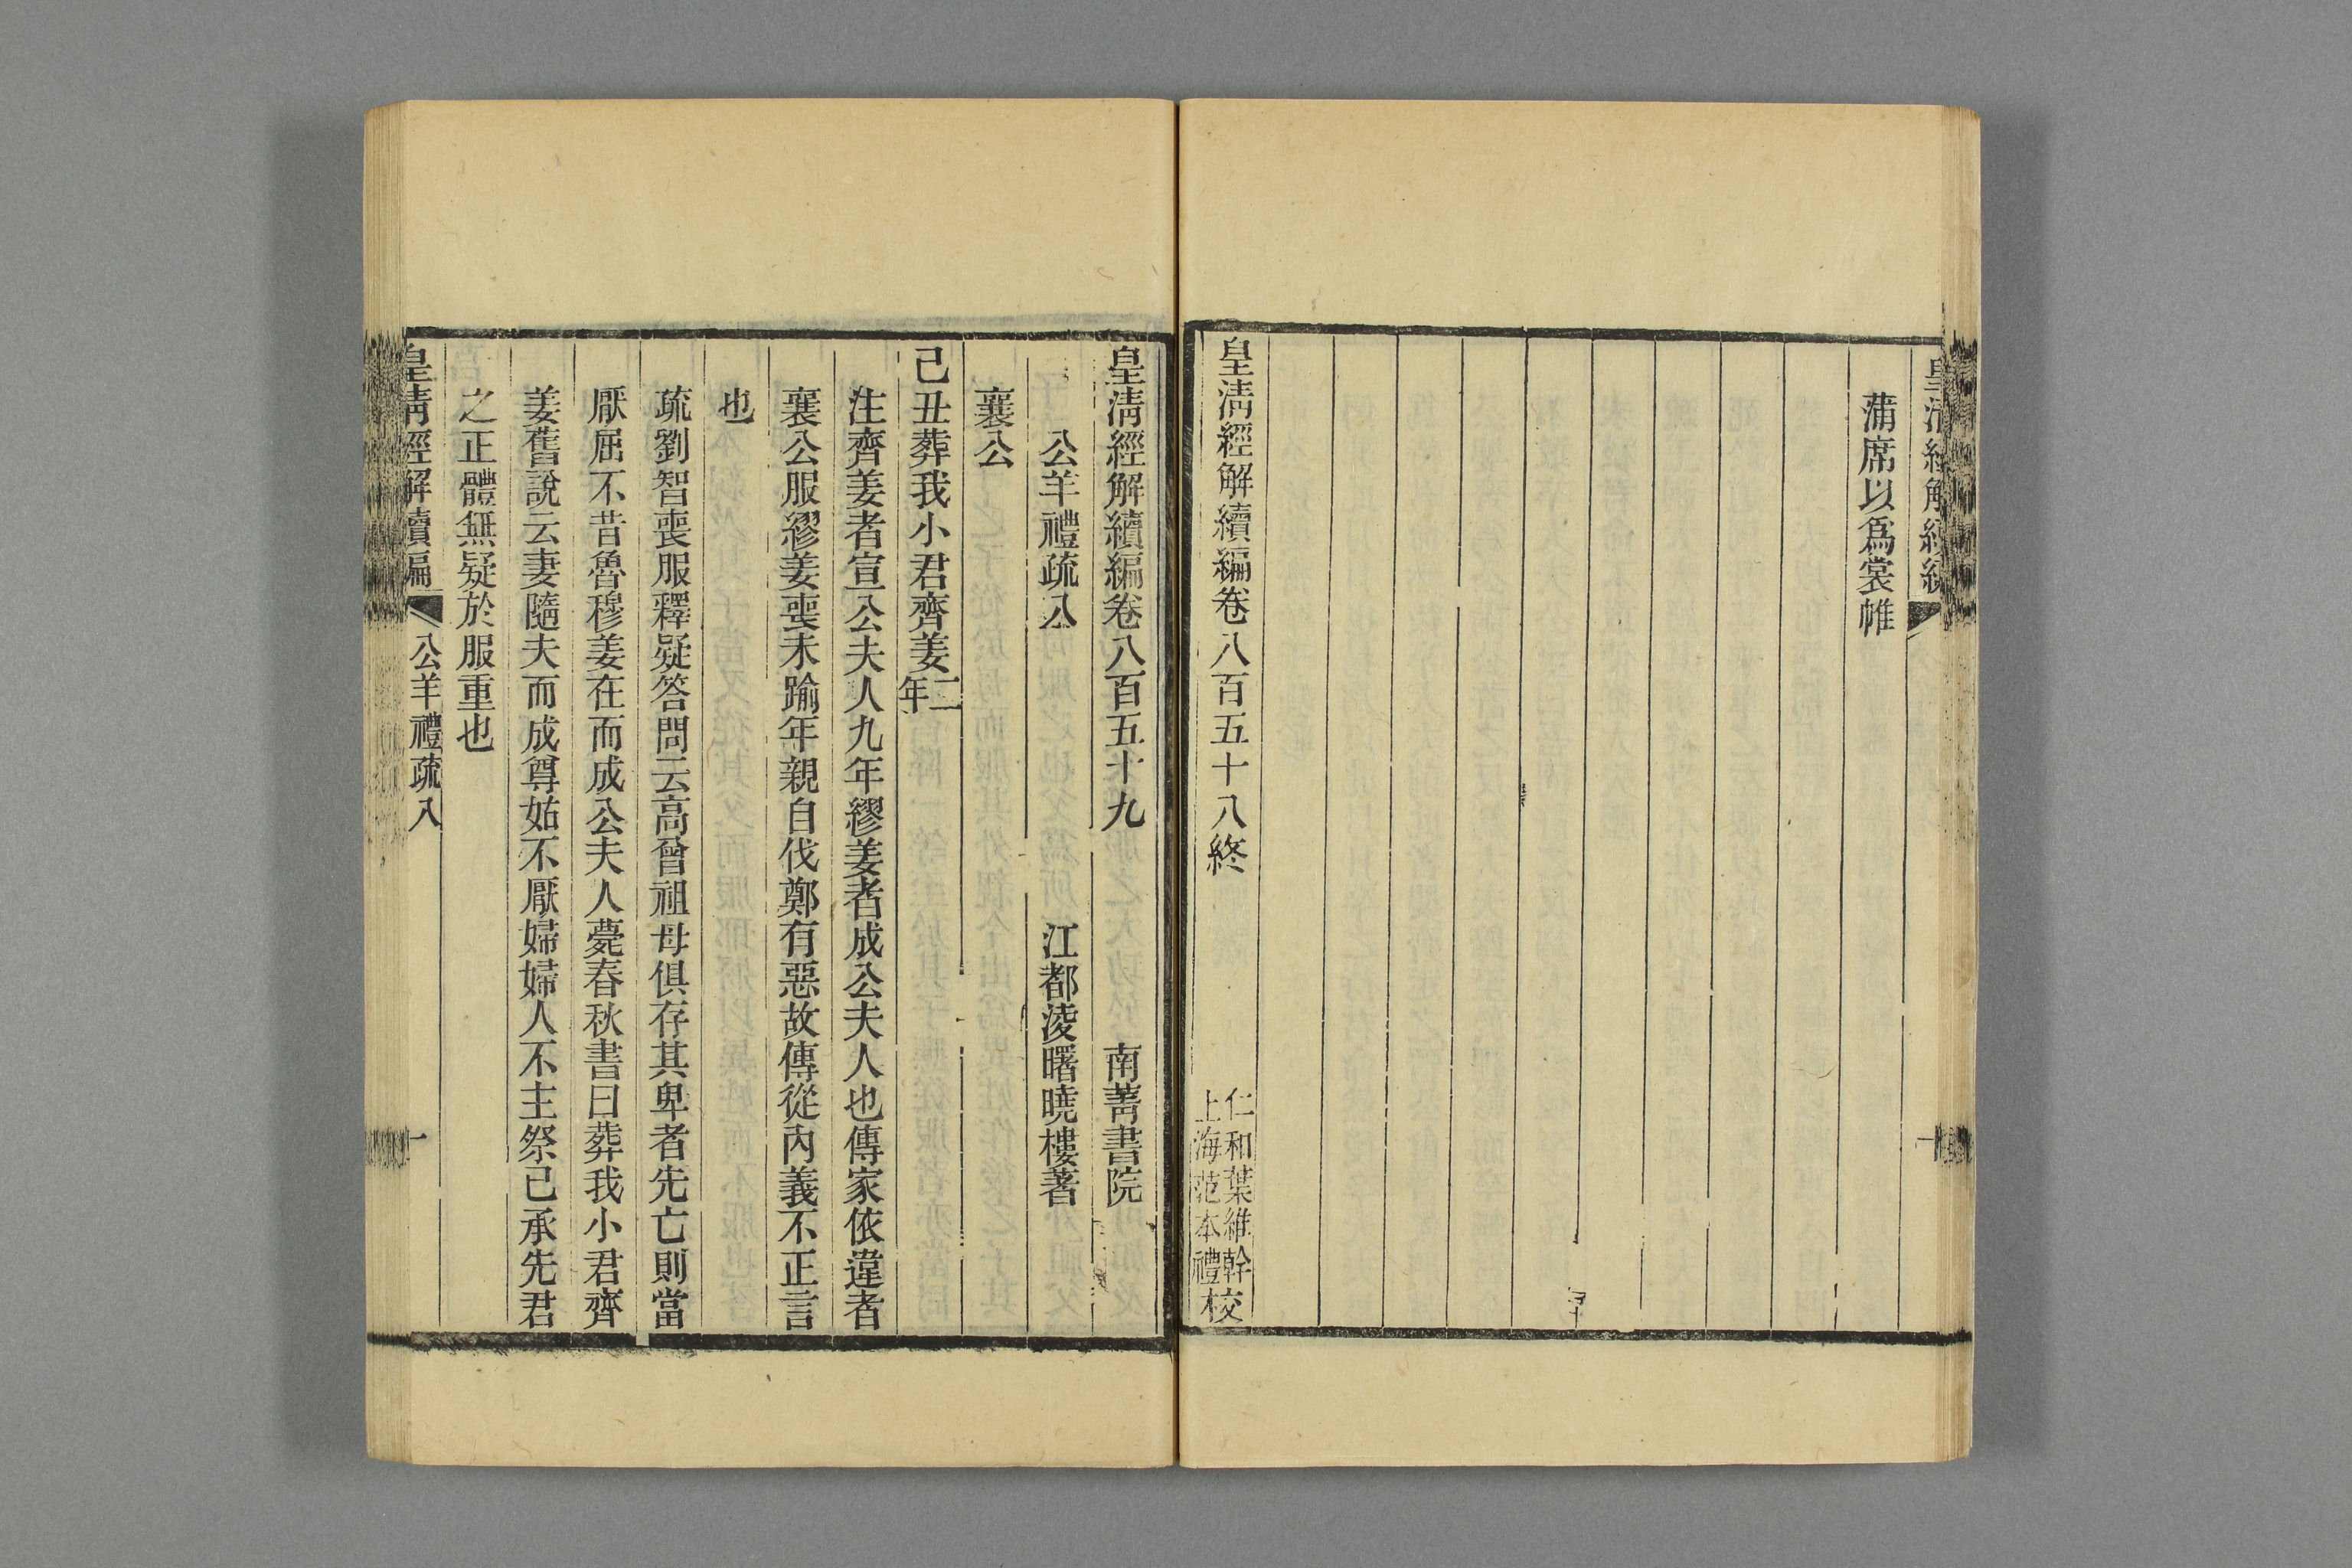 蒲席以爲裳帷
皇清經解續編卷八百五十八終
仁和葉維幹
上海范本禮校
皇清經解續編卷八百五十九
南菁書院
公羊禮疏八
江都淩曙曉樓著
襄公
己丑葬我小君齊姜二年
注齊姜者宣公夫人九年繆姜者成公夫人也傳家依違者
襄公服繆姜喪未踰年親自伐鄭有惡故傳從內義不正言
也
疏劉智喪服釋疑答問云高曾祖母俱存其卑者先亡則當
厭屈不昔魯穆姜在而成公夫人薨春秋書曰葬我小君齊
姜舊說云妻隨夫而成尊姑不厭婦婦人不主祭己承先君
之正體無疑於服重也
皇清經解續編
公羊禮疏八
一